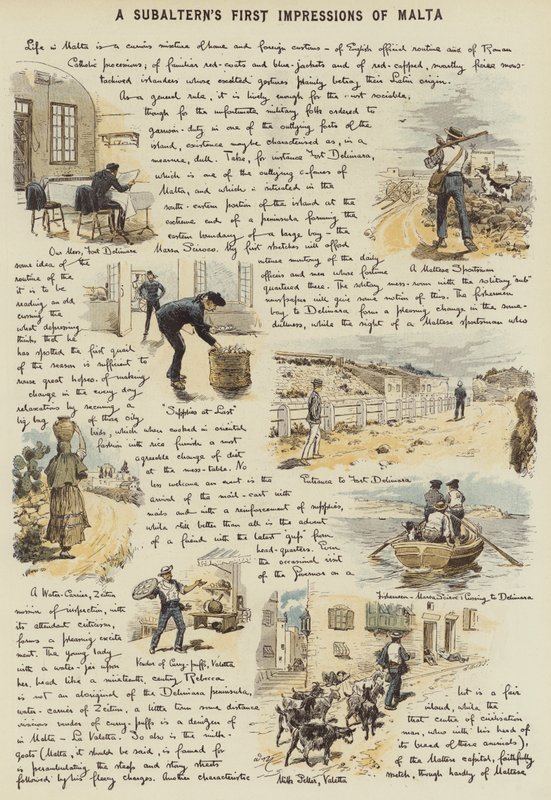 A SUBALTERN'S FIRST IMPRESSIONS OF MALTA
Life in Malta is a curious mixture of home and foreign customs – of English official routine and of Roman
Catholic processions; of familiar red-coats and blue-jackets and of red-capped, swarthy fierce mous-
tachioed islanders whose excited gestures plainly betray their Latin origin.
As a general rule, it is lively enough for the most sociable,
though for the unfortunate military folks ordered to
garrison-duty in one of the outlying forts of the
island, existence may be characterised as, in a
measure, dull. Take, for instance Fort Delimara,
which is one of the outlying of
Malta, and which is situated in the
south-eastern portion of the island at the
extreme end of a peninsula forming the
eastern boundary of a large bay – the
Marsa Scirocco. My first sketches will afford
Our Mess, Fort Delimara
A Maltese Sportsman
some idea of the intense monotony of the daily
routine of the officers and men whose fortune
it is to be quartered there. The solitary mess-room with the solitary "sub"
reading an old newspaper will give some notion of this. The fishermen
cursing the bay to Delimara form a pleasing change in the same
what depressing dullness, while the sight of a Maltese sportsman who
thinks that he
has spotted the first quail
of the season is sufficient to
raise great hopes of making
change in the every day
relaxations by securing a
big bag of these oily
birds, which when cooked in oriental
fashion with rice furnish a most
agreeable change of diet
at the mess-table. No
less welcome an event is the
arrival of the mail-cart with
mails and with a reinforcement of supplies,
while still better than all is the advent
of a friend with the latest "gup" from
head-quarters. Even
the occasional visit
of the Governor on a
"Supplies at Last"
Entrance to Fort Delimara
Fishermen – Marsa Scirocco Crossing to Delimara
A Water-Carrier, Zeitun
Vendor of Curry-puffs, Valetta
mission of inspection, with
its attendant criticism,
forms a pleasing excite
ment. The young lady
with a water-jar upon
her head like a nineteenth century Rebecca
is not an aboriginal of the Delimara peninsula, but is a fair
water-carrier of Zeitun, a little town some distance inland, while the
vivacious vendor of curry-puffs is a denizen of that centre of civilisation
in Malta – La Valetta. So also is the milk- man, who with his herd of
goats (Malta, it should be said, is famed for its breed of these animals),
is perambulating the steep and stony streets of the Maltese capital, faithfully
followed by his fleecy charges. Another characteristic sketch, though hardly of Maltese
Milk Seller, Valetta